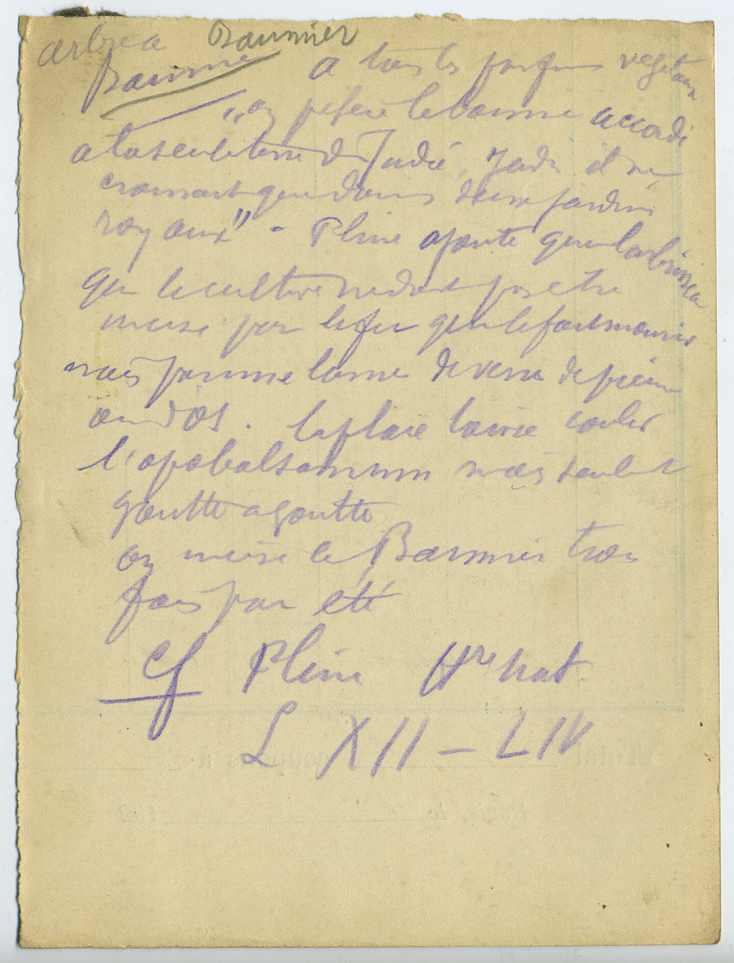 arbre a Baumier
Baume a tous les parfums vegetaux
"on prefere le baume accordé
a la seule terre de Judée, Jadis il ne
croissait que dans deux jardins
royaux" - Pline ajoute que l'arbrisseau
que le cultive ne doit pas etre
incisé par le fer qui le fait mourir
mais par une lame de verre de pierre
ou d'os. la plaie laisse couler
l'opobalsamum mais seulemt
goutte a goutte
on incise le Baumier trois
fois par été
cf Pline Hre nat.
L XII - LIV
Total à
Paris, le 192